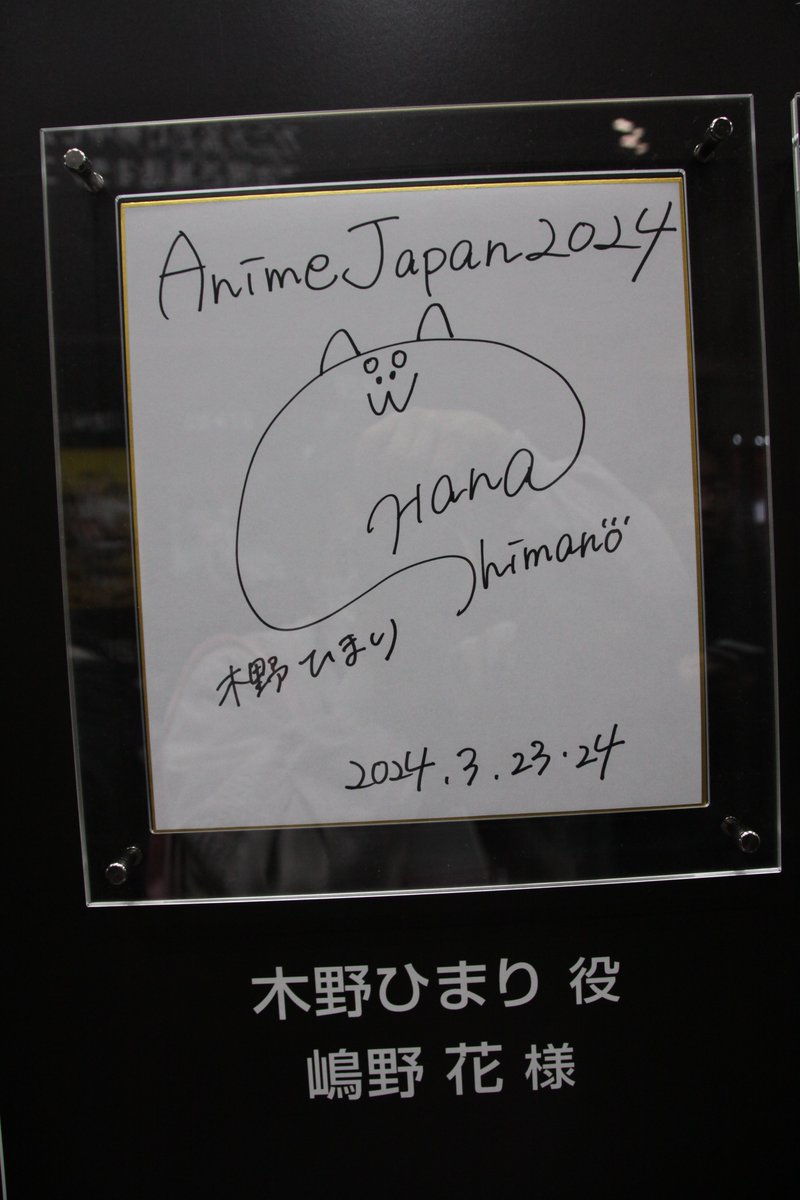 AnimeJapan2024
Hana
Shimano
木野ひまり
2024.3.23.24
木野ひまり 役
嶋野 花 様